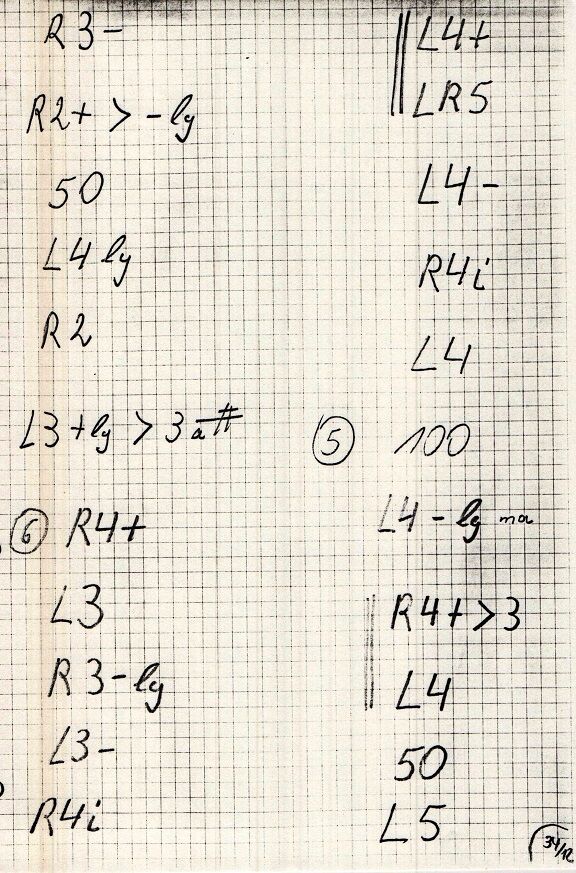 R3-
R2+ > - lg
50
L4 lg
R2
L3 + lg > 3 a
⑥ R4+
L3
R3- lg
L3-
R4i
L4+
LR5
L4-
R4i
L4
⑤ 100
L4 - lg ma
R4+>3
L4
50
L5
34/12